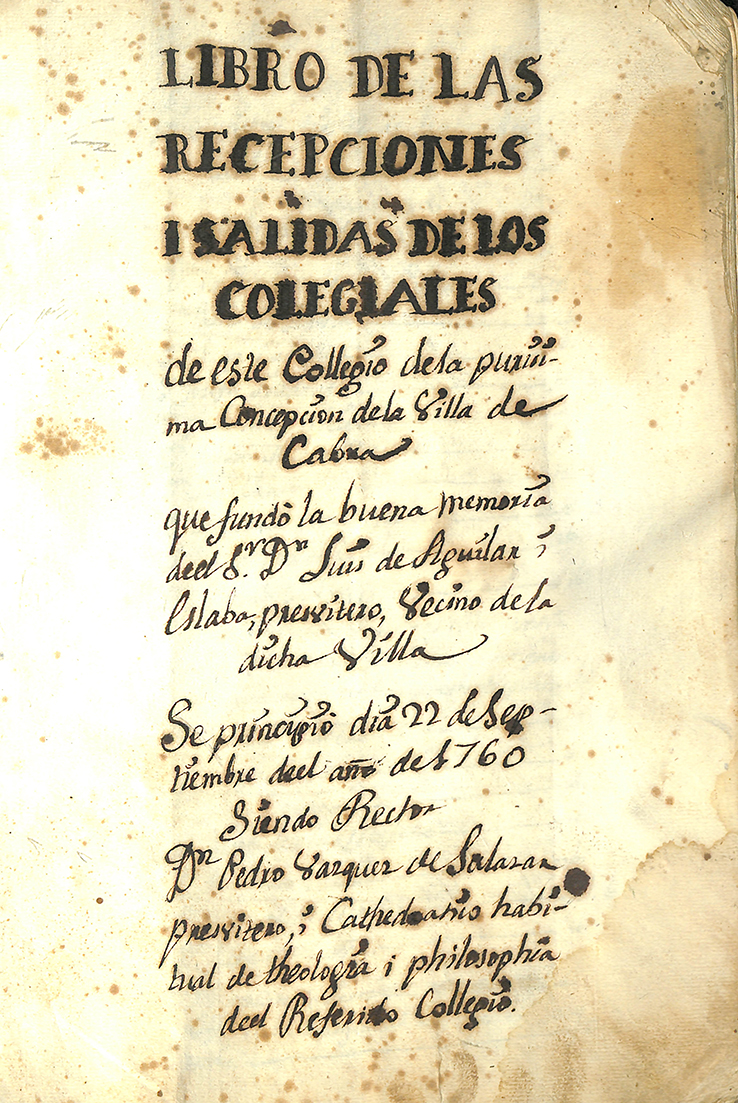 LIBRO DE LAS
RECEPCIONES
I SALIDAS DE LOS
COLEGIALES
de este Collegio de la purissi-
ma Concepcion de la Villa de
Cabra
que fundò la buena memoria
deel S.r Dn Luis de Aguilar i
Eslaba, presvitero, Vecino de la
dicha Villa
Se principiò dia 22 de Sep-
tiembre deel año de 1760
Siendo Rector
Dn Pedro Vazquez de Salazar
presvitero, i Cathedratico habi-
tual de theologia i philosophia
deel Referido Collegio.